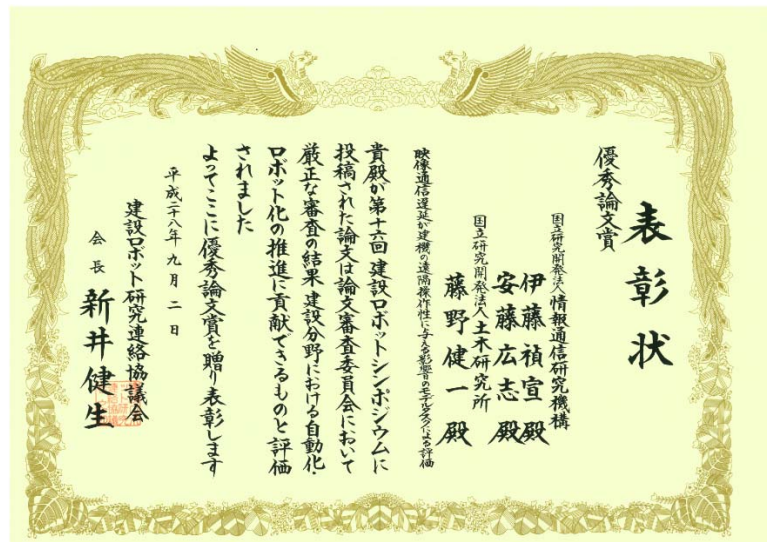 表彰状
優秀論文賞
国立研究開発法人情報通信研究機構
伊藤禎宣殿
安藤広志殿
国立研究開発法人土木研究所
藤野健一殿
映像通信遅延が建機の遠隔操作性に与える影響のモデルタスクによる評価
貴殿が第十六回建設ロボットシンポジウムに
投稿された論文は論文審査委員会において
厳正な審査の結果建設分野における自動化・
ロボット化の推進に貢献できるものと評価
されました
よってここに優秀論文賞を贈り表彰します
平成二十八年九月二日
建設ロボット研究連絡協議会
会長 新井健生